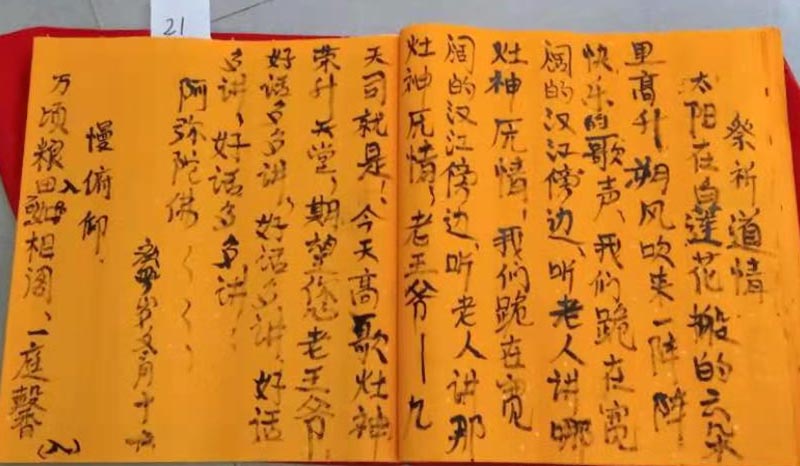 21
祭祈道情
太阳在白莲花搬的云朵
里高升,朔风吹来一阵阵
快乐的歌声、我们跪在宽
阔的汉江傍边、听老人讲哪
灶神情,我们跪在宽
阔的汉江傍边、听老人讲那
灶神情,老王爷一九
天司就是:今天高歌灶神
荣升天堂,期望您老王爷
好话多多讲,好话多讲,好话
多讲,好话多多讲:
阿弥陀佛く く く
月十
慢俯仰.
万顷粮田相阔、一庭馨(入)